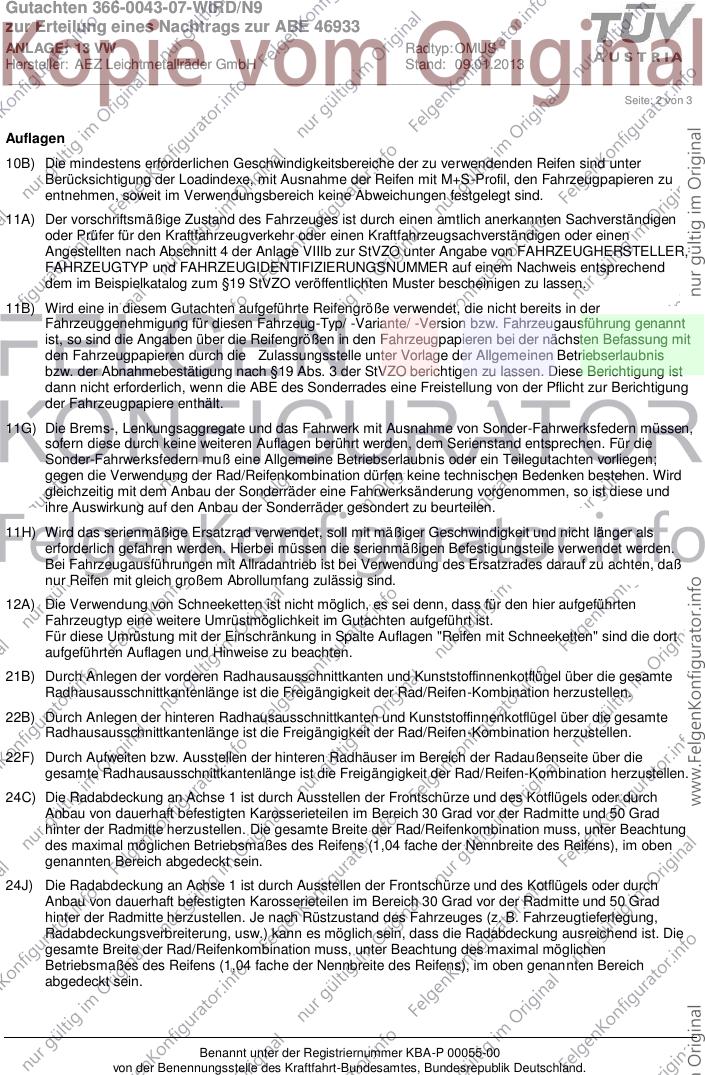 Gutachten 366-0043-07-WIRD/N9
zur Erteilung eines Nachtrags zur ABE 46933
ANLAGE: 13 VW
Hersteller: AEZ Leichtmetallräder GmbH
Radtyp: OMIU8
Stand: 09.01.2013
TÜV
AUSTRIA
Kopie vom Original
Seite: 2 von 3
Auflagen
10B) Die mindestens erforderlichen Geschwindigkeitsbereiche der zu verwendenden Reifen sind unter
Berücksichtigung der Loadindexe, mit Ausnahme der Reifen mit M+S-Profil, den Fahrzeugpapieren zu
entnehmen, soweit im Verwendungsbereich keine Abweichungen festgelegt sind.
11A) Der vorschriftsmäßige Zustand des Fahrzeuges ist durch einen amtlich anerkannten Sachverständigen
oder Prüfer für den Kraftfahrzeugverkehr oder einen Kraftfahrzeugsachverständigen oder einen
Angestellten nach Abschnitt 4 der Anlage VIIIb zur StVZO unter Angabe von FAHRZEUGHERSTELLER,
FAHRZEUGTYP und FAHRZEUGIDENTIFIZIERUNGSNUMMER auf einem Nachweis entsprechend
dem im Beispielkatalog zum §19 StVZO veröffentlichten Muster bescheinigen zu lassen.
11B) Wird eine in diesem Gutachten aufgeführte Reifengröße verwendet, die nicht bereits in der
Fahrzeuggenehmigung für diesen Fahrzeug-Typ/ -Variante/ -Version bzw. Fahrzeugausführung genannt
ist, so sind die Angaben über die Reifengrößen in den Fahrzeugpapieren bei der nächsten Befassung mit
den Fahrzeugpapieren durch die Zulassungsstelle unter Vorlage der Allgemeinen Betriebserlaubnis
bzw. der Abnahmebestätigung nach §19 Abs. 3 der StVZO berichtigen zu lassen. Diese Berichtigung ist
dann nicht erforderlich, wenn die ABE des Sonderrades eine Freistellung von der Pflicht zur Berichtigung
der Fahrzeugpapiere enthält.
11G) Die Brems-, Lenkungsaggregate und das Fahrwerk mit Ausnahme von Sonder-Fahrwerksfedern müssen,
sofern diese durch keine weiteren Auflagen berührt werden, dem Serienstand entsprechen. Für die
Sonder-Fahrwerksfedern muß eine Allgemeine Betriebserlaubnis oder ein Teilegutachten vorliegen;
gegen die Verwendung der Rad/Reifenkombination dürfen keine technischen Bedenken bestehen. Wird
gleichzeitig mit dem Anbau der Sonderräder eine Fahrwerksänderung vorgenommen, so ist diese und
ihre Auswirkung auf den Anbau der Sonderräder gesondert zu beurteilen.
11H) Wird das serienmäßige Ersatzrad verwendet, soll mit mäßiger Geschwindigkeit und nicht länger als
erforderlich gefahren werden. Hierbei müssen die serienmäßigen Befestigungsteile verwendet werden.
Bei Fahrzeugausführungen mit Allradantrieb ist bei Verwendung des Ersatzrades darauf zu achten, daß
nur Reifen mit gleich großem Abrollumfang zulässig sind.
12A) Die Verwendung von Schneeketten ist nicht möglich, es sei denn, dass für den hier aufgeführten
Fahrzeugtyp eine weitere Umrüstmöglichkeit im Gutachten aufgeführt ist.
Für diese Umrüstung mit der Einschränkung in Spalte Auflagen "Reifen mit Schneeketten" sind die dort
aufgeführten Auflagen und Hinweise zu beachten.
21B) Durch Anlegen der vorderen Radhausausschnittkanten und Kunststoffinnenkotflügel über die gesamte
Radhausausschnittkantenlänge ist die Freigängigkeit der Rad/Reifen-Kombination herzustellen.
22B) Durch Anlegen der hinteren Radhausausschnittkanten und Kunststoffinnenkotflügel über die gesamte
Radhausausschnittkantenlänge ist die Freigängigkeit der Rad/Reifen-Kombination herzustellen.
22F) Durch Aufweiten bzw. Ausstellen der hinteren Radhäuser im Bereich der Radaußenseite über die
gesamte Radhausausschnittkantenlänge ist die Freigängigkeit der Rad/Reifen-Kombination herzustellen.
24C) Die Radabdeckung an Achse 1 ist durch Ausstellen der Frontschürze und des Kotflügels oder durch
Anbau von dauerhaft befestigten Karosserieteilen im Bereich 30 Grad vor der Radmitte und 50 Grad
hinter der Radmitte herzustellen. Die gesamte Breite der Rad/Reifenkombination muss, unter Beachtung
des maximal möglichen Betriebsmaßes des Reifens (1,04 fache der Nennbreite des Reifens), im oben
genannten Bereich abgedeckt sein.
24J) Die Radabdeckung an Achse 1 ist durch Ausstellen der Frontschürze und des Kotflügels oder durch
Anbau von dauerhaft befestigten Karosserieteilen im Bereich 30 Grad vor der Radmitte und 50 Grad
hinter der Radmitte herzustellen. Je nach Rüstzustand des Fahrzeuges (z. B. Fahrzeugtieferlegung,
Radabdeckungsverbreiterung, usw.) kann es möglich sein, dass die Radabdeckung ausreichend ist. Die
gesamte Breite der Rad/Reifenkombination muss, unter Beachtung des maximal möglichen
Betriebsmaßes des Reifens (1,04 fache der Nennbreite des Reifens), im oben genannten Bereich
abgedeckt sein.
FELGEN
KONFIGURATOR
FelgenKonfigurator.info
nur gültig im Original
www.FelgenKonfigurator.info
Benannt unter der Registriernummer KBA-P 00055-00
von der Benennungsstelle des Kraftfahrt-Bundesamtes, Bundesrepublik Deutschland.